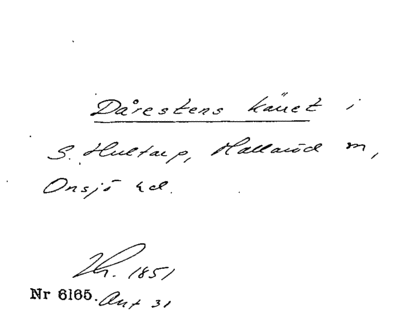 Dårestens käuet i
S. Hultarp, Hallaröd m,
Onsjö hd.
Th. 1851
Nr 6165. Ant 31